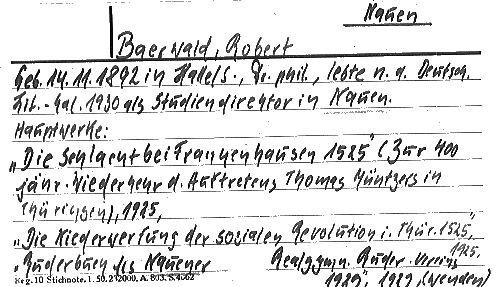 Nauen
Baerwald, Robert
Geb. 14.11.1892 in Halle/S., Dr. phil., lebte n. d. Deutsch.
Lit.-Kal. 1930 als Studiendirektor in Nauen.
Hauptwerke:
„Die Schlacht bei Frankenhausen 1525" (Zur 400
jähr. Wiederkehr d. Auftretens Thomas Müntzers in
Thüringen), 1925,
„Die Niederwerfung der sozialen Revolution i. Thür. 1525", 1925.
„Ruderbuch des Nauener Realgymn. Ruder-Vereins
Reg. 10 Stichnote. 1. 50. 2/2000. A. 803. S. 4062
1929", 1929 (Nauen)